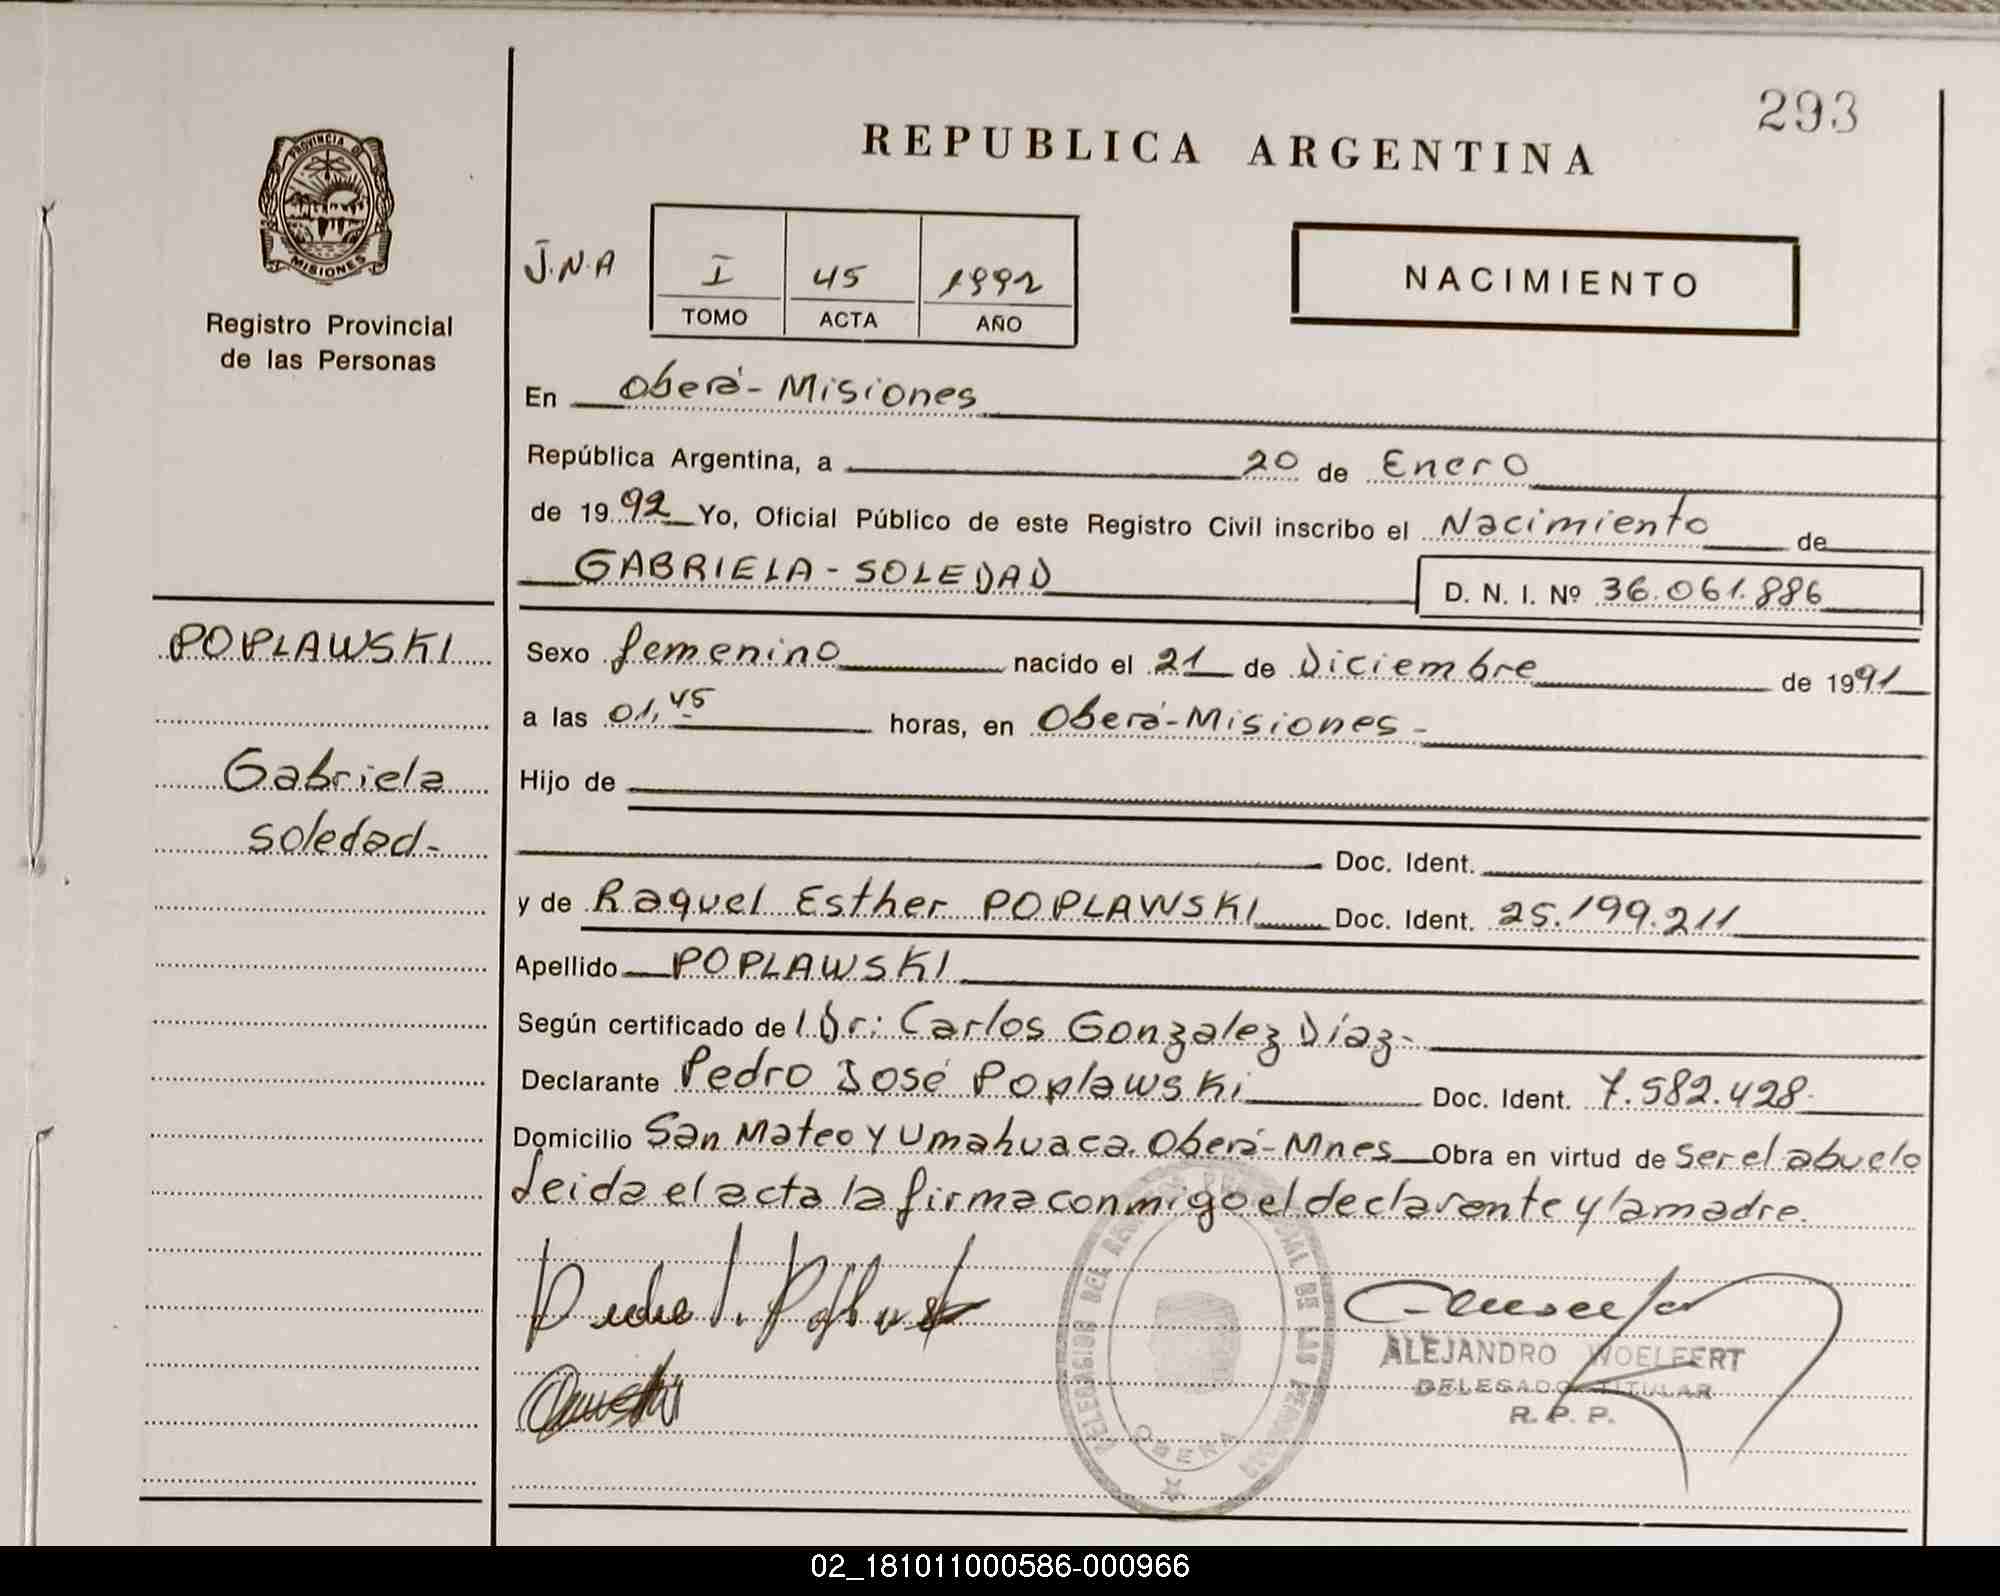 293
REPUBLICA ARGENTINA
PROVINCIA DE
MISIONES
Registro Provincial
de las Personas
J.N.A
I 45 1992
TOMO ACTA AÑO
NACIMIENTO
En Oberá - Misiones
República Argentina, a 20 de Enero
de 1992 Yo, Oficial Público de este Registro Civil inscribo el Nacimiento de
GABRIELA - SOLEDAD D. N. I. Nº 36.061.886
POPLAWSKI
Gabriela
Soledad-
Sexo femenino nacido el 21 de Diciembre de 1991
a las 01,45 horas, en Oberá - Misiones -
Hijo de
Doc. Ident.
y de Raquel Esther POPLAWSKI Doc. Ident. 25.199.211
Apellido POPLAWSKI
Según certificado de l Dr: Carlos Gonzalez Díaz-
Declarante Pedro José Poplawski Doc. Ident. 7.582.428-
Domicilio San Mateo y Umahuaca. Oberá - Mnes Obra en virtud de Ser el abuelo
Leida el acta la firma conmigo el declarante y la madre.
DELEGACION DEL REGISTRO PROVINCIAL DE LAS PERSONAS
OBERA
ALEJANDRO WOELFERT
DELEGADO TITULAR
R. P. P.
02_181011000586-000966